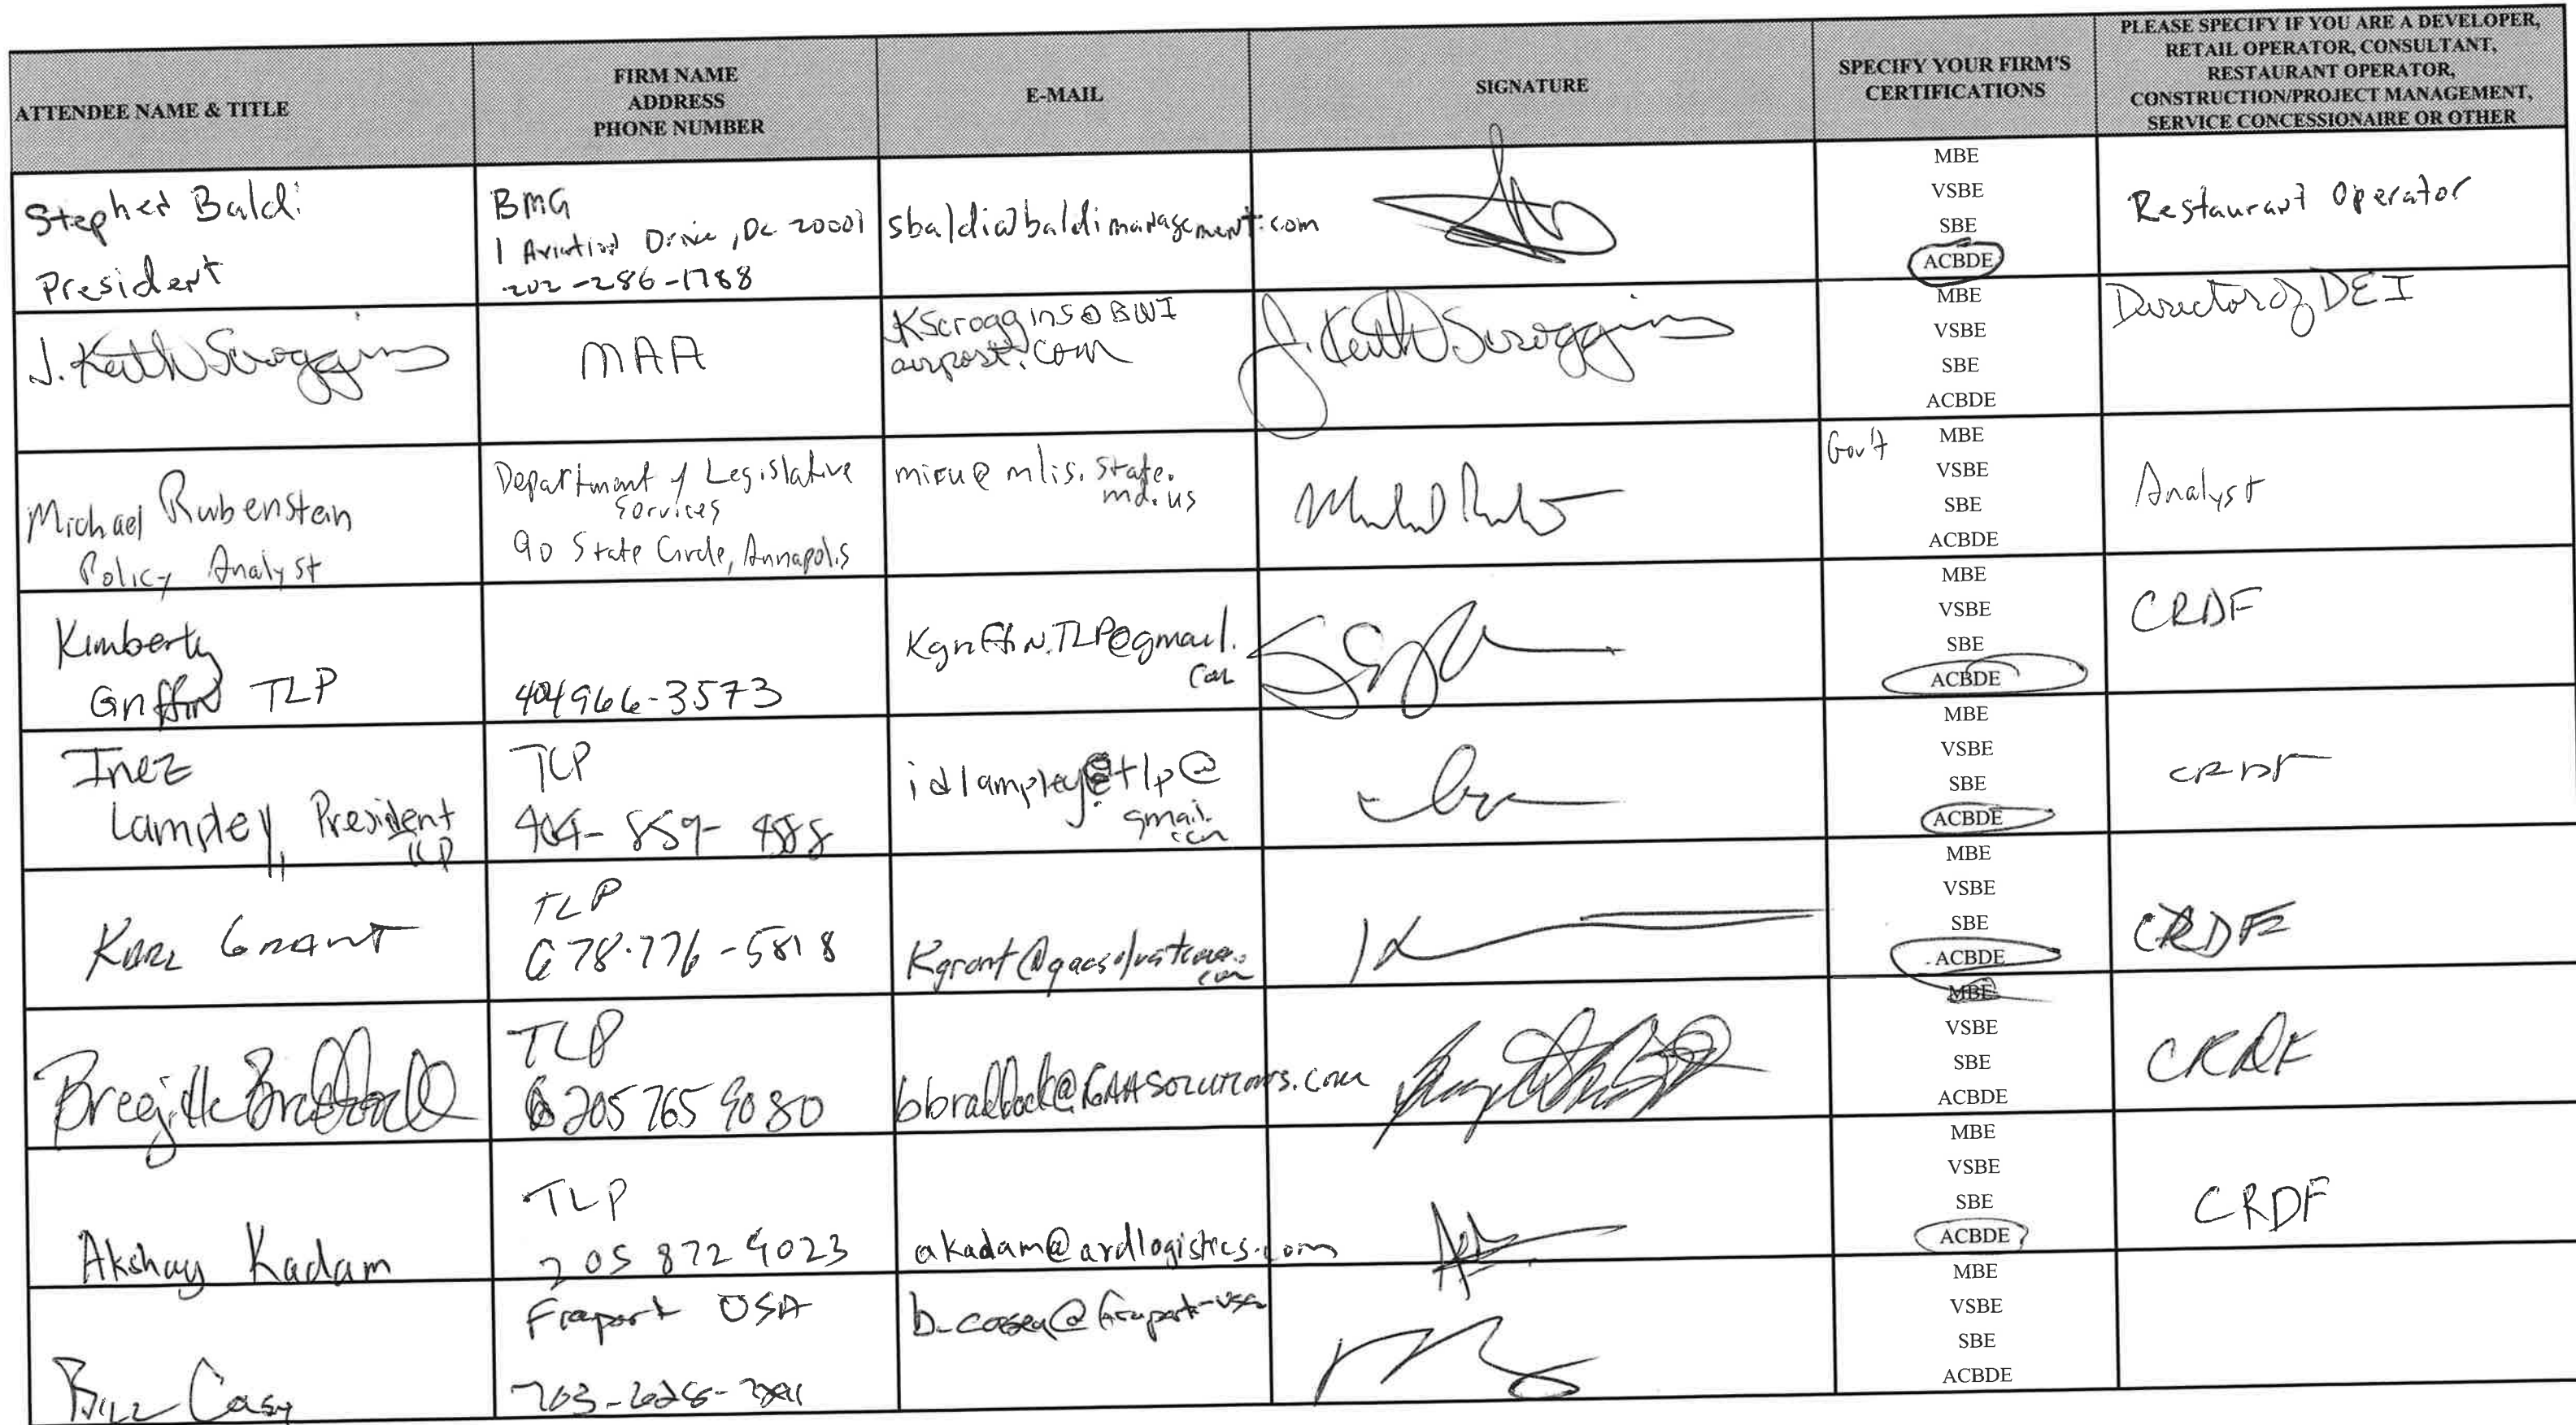 ATTENDEE NAME & TITLE
FIRM NAME
ADDRESS
PHONE NUMBER
E-MAIL
SIGNATURE
SPECIFY YOUR FIRM'S
CERTIFICATIONS
PLEASE SPECIFY IF YOU ARE A DEVELOPER,
RETAIL OPERATOR, CONSULTANT,
RESTAURANT OPERATOR,
CONSTRUCTION/PROJECT MANAGEMENT,
SERVICE CONCESSIONAIRE OR OTHER
Stephen Baldi
President
BMG
1 Aviation Drive, DC 20001
202-286-1788
sbaldi@baldimanagement.com
MBE
VSBE
SBE
ACBDE
Restaurant Operator
J. Keith Scroggins
MAA
KScroggins@BWI
airport.com
J. Keith Scroggins
MBE
VSBE
SBE
ACBDE
Director of DEI
Michael Rubenstein
Policy Analyst
Department of Legislative
Services
90 State Circle, Annapolis
@mlis.state.
md.us
Gov't
MBE
VSBE
SBE
ACBDE
Analyst
Kimberly
Griffin TLP
404 966-3573
Kgriffin.TLP@gmail.
com
MBE
VSBE
SBE
ACBDE
CRDF
Inez
Lampley, President
TLP
TLP
idlampleytlp@
gmail.
com
MBE
VSBE
SBE
ACBDE
CRDF
Karl Grant
TLP
678-776-5818
MBE
VSBE
SBE
ACBDE
CRDF
TLP
205 765 9080
MBE
VSBE
SBE
ACBDE
CRDF
Akshay Kadam
TLP
205 872 9023
akadam@ardlogistics.com
MBE
VSBE
SBE
ACBDE
CRDF
Fraport USA
MBE
VSBE
SBE
ACBDE